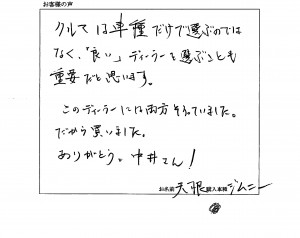 お客様の声
クルマは車種だけで選ぶのでは
なく、「良い」ディーラーを選ぶことも
重要だと思います。
このディーラーには両方そろっていました。
だから買いました。
ありがとう。中井さん!
お名前 天眼 購入車種 ジムニー